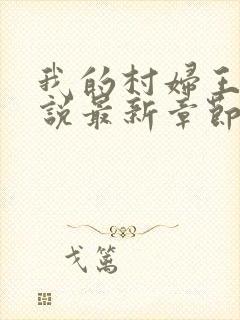 我的村婦王
說最新章節
戈篱